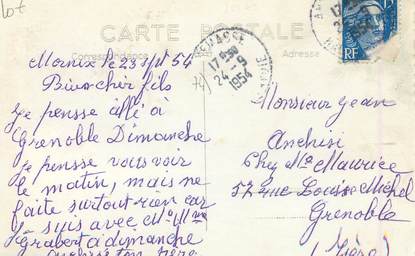 Lot
CARTE POSTALE
Correspondance
Adresse
17 30
24-9
1954
SAVOIE
Mornix le 23 sept 54
Bien cher fils
Je pensse allé à
Grenoble Dimanche
je pensse vous voir
le matin, mais ne
faite surtout rien car
je suis avec Mr Mme
Grabert à dimanche
RF
Monsieur Jean
Anchisi
Chez Mr Maurice
52 rue Louise Michel
Grenoble
(Isère)